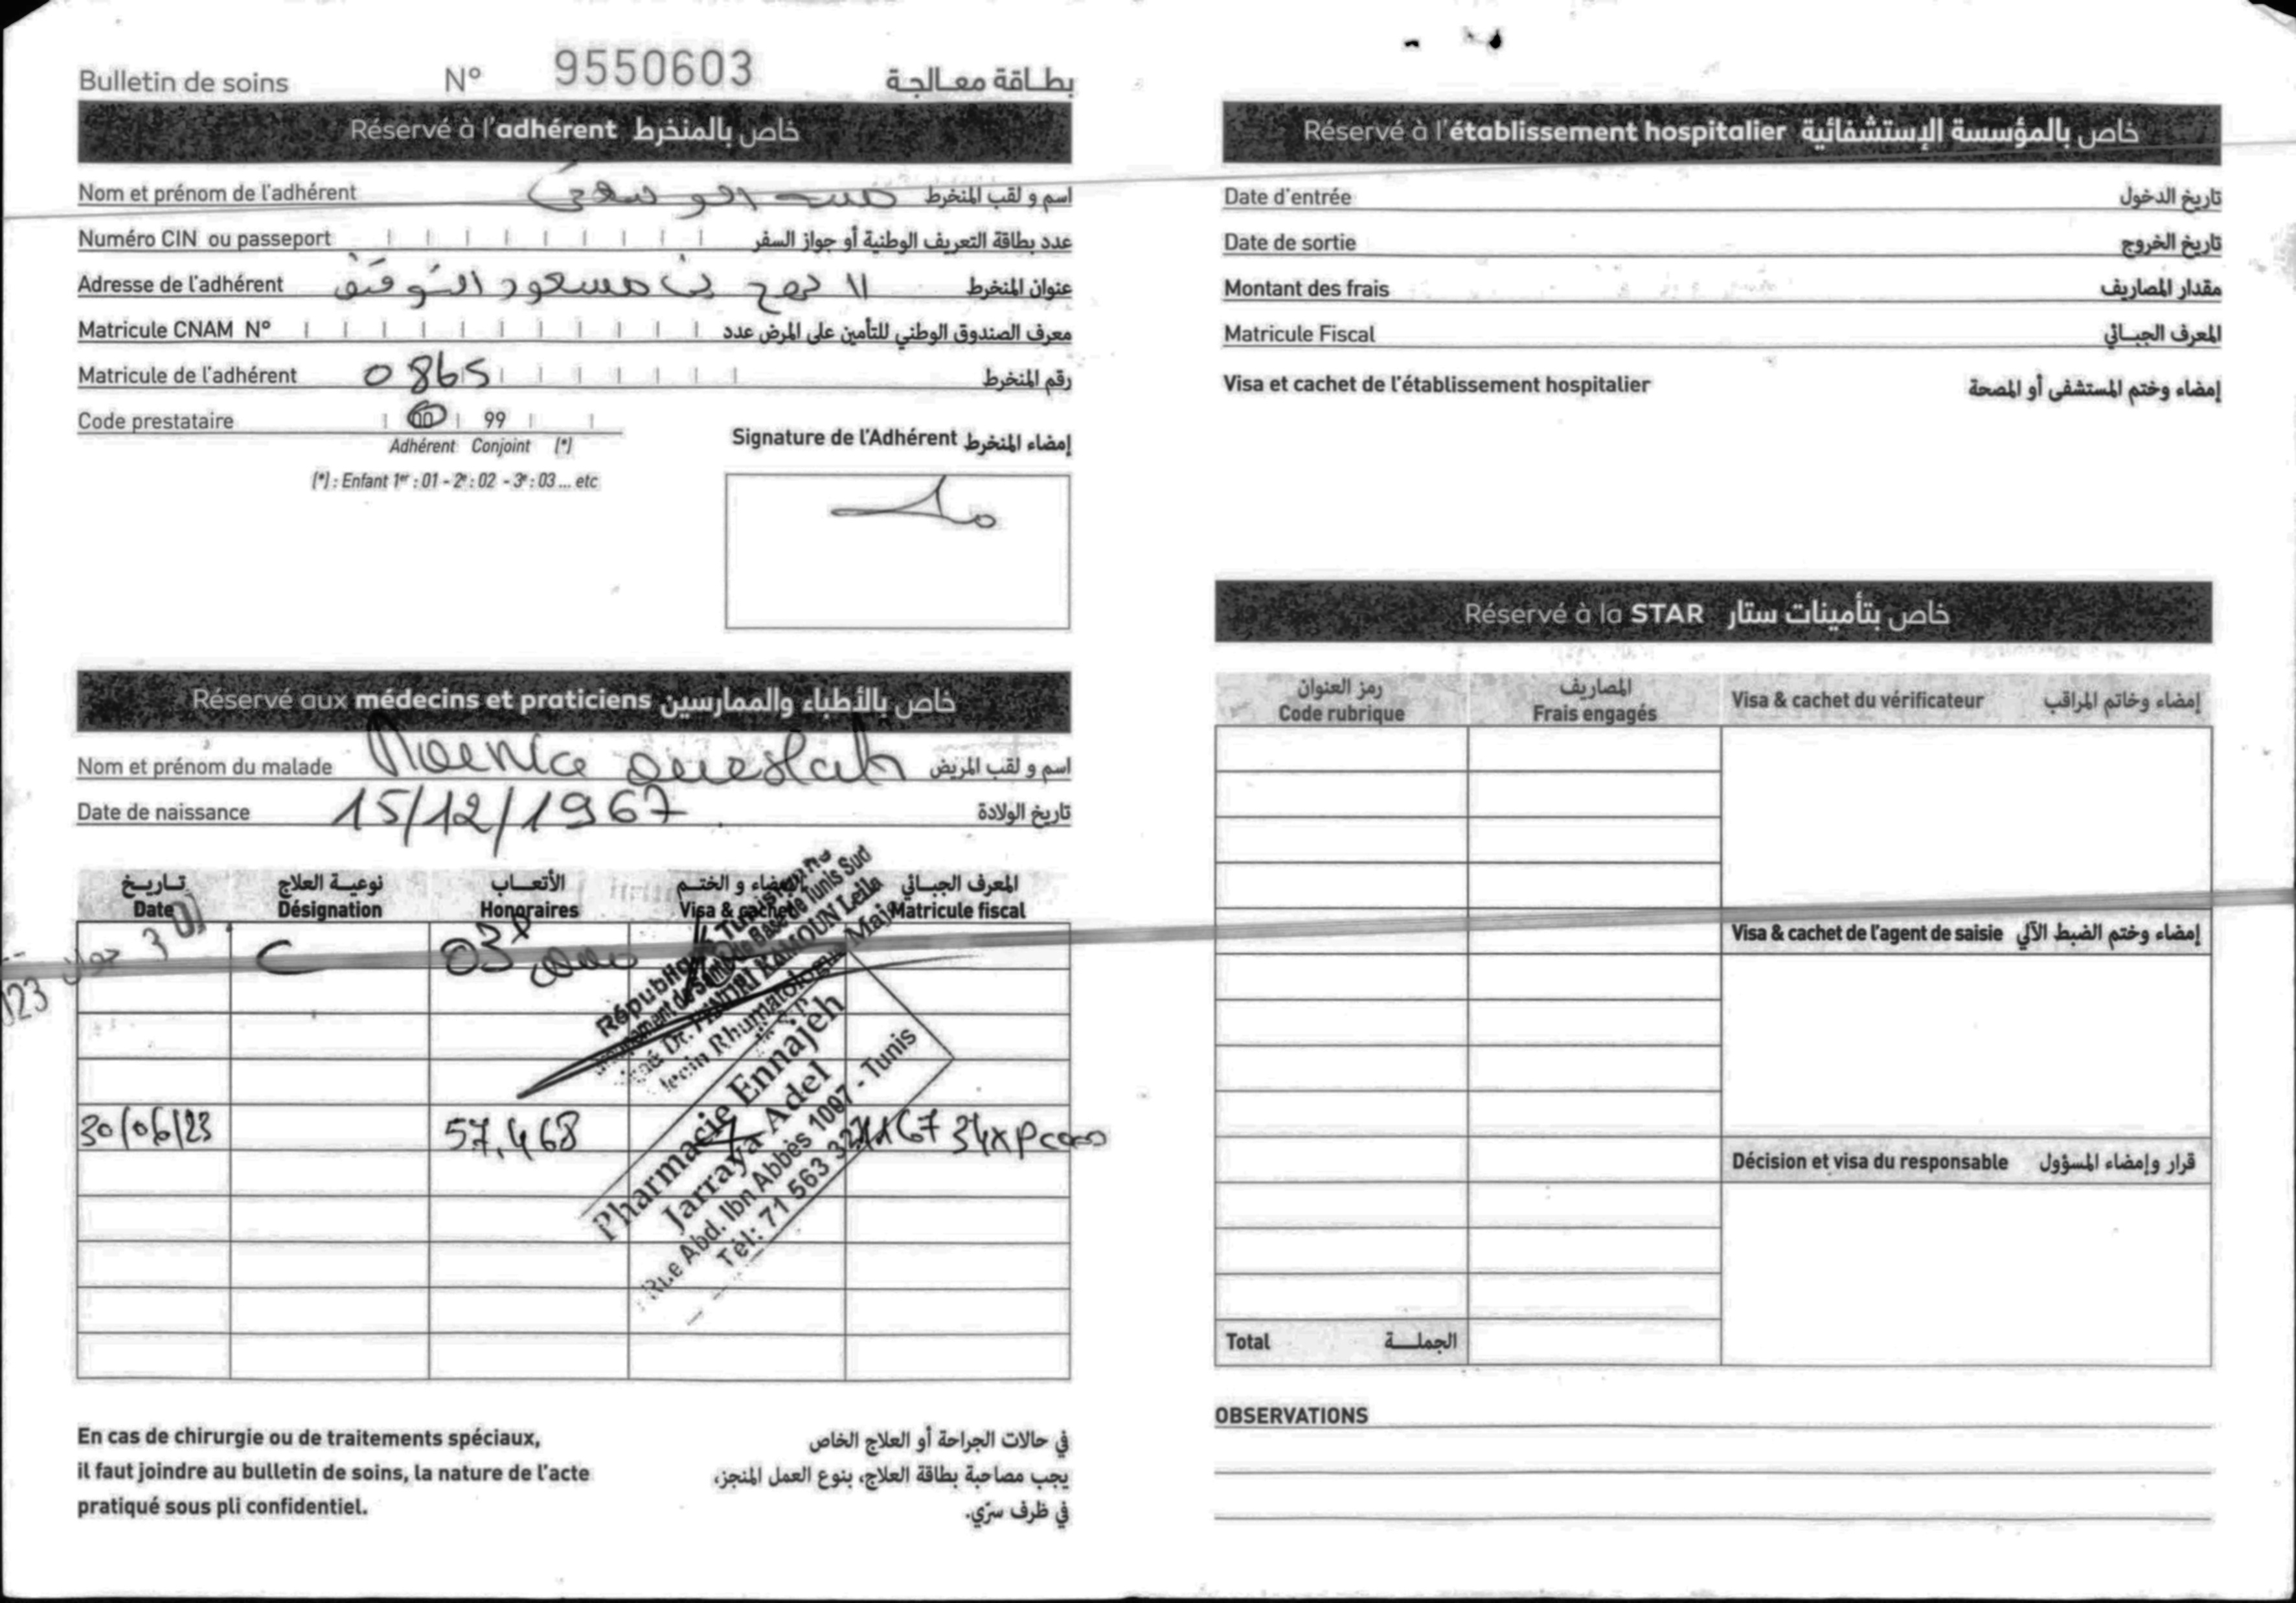 Bulletin de soins N° 9550603 بطاقة معالجة
Réservé à l'adhérent خاص بالمنخرط
Nom et prénom de l'adhérent اسم و لقب المنخرط
Numéro CIN ou passeport عدد بطاقة التعريف الوطنية أو جواز السفر
Adresse de l'adhérent 11 نهج بن مسعود عنوان المنخرط
Matricule CNAM N° معرف الصندوق الوطني للتأمين على المرض عدد
Matricule de l'adhérent 0865 رقم المنخرط
Code prestataire 00 99
Adhérent Conjoint (*)
(*) : Enfant 1er : 01 - 2e : 02 - 3e : 03 ... etc
Signature de l'Adhérent إمضاء المنخرط
Réservé aux médecins et praticiens خاص بالأطباء والممارسين
Nom et prénom du malade اسم و لقب المريض
Date de naissance 15/12/1967 تاريخ الولادة
تاريخ نوعية العلاج الأتعاب إمضاء و الختم المعرف الجبائي
Date Désignation Honoraires Visa & cachet Matricule fiscal
C
de Base de Tunis Sud
Dr. KAMOUN Leila
Rhumatologue
30/06/23 57,468
Pharmacie Ennajeh
Jarraya Adel
Rue Abd. Ibn Abbès 1007 - Tunis
Tél: 71 563 327
En cas de chirurgie ou de traitements spéciaux,
il faut joindre au bulletin de soins, la nature de l'acte
pratiqué sous pli confidentiel.
في حالات الجراحة أو العلاج الخاص
يجب مصاحبة بطاقة العلاج، بنوع العمل المنجز،
في ظرف سرّي.
Réservé à l'établissement hospitalier خاص بالمؤسسة الإستشفائية
Date d'entrée تاريخ الدخول
Date de sortie تاريخ الخروج
Montant des frais مقدار المصاريف
Matricule Fiscal المعرف الجبائي
Visa et cachet de l'établissement hospitalier إمضاء وختم المستشفى أو المصحة
Réservé à la STAR خاص بتأمينات ستار
رمز العنوان المصاريف
Code rubrique Frais engagés Visa & cachet du vérificateur إمضاء وخاتم المراقب
Visa & cachet de l'agent de saisie إمضاء وختم الضبط الآلي
Décision et visa du responsable قرار وإمضاء المسؤول
Total الجملة
OBSERVATIONS